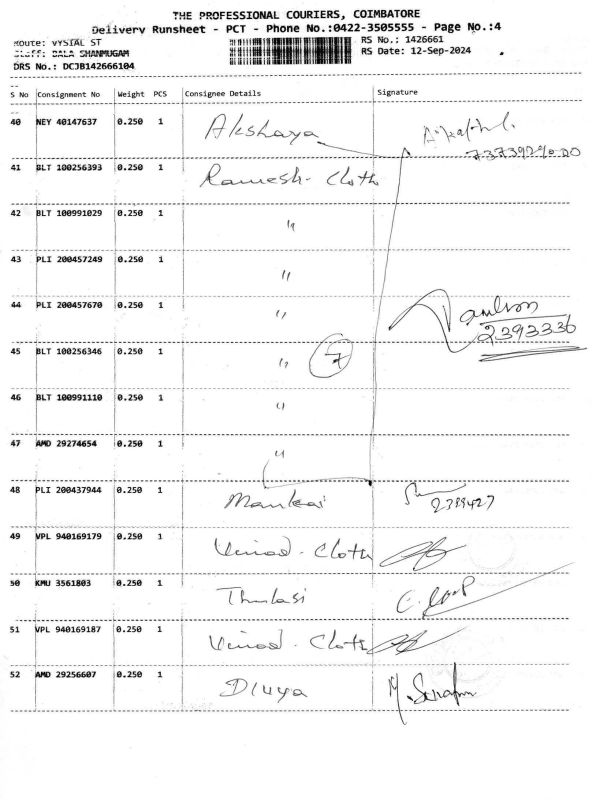 THE PROFESSIONAL COURIERS, COIMBATORE
Delivery Runsheet - PCT - Phone No.:0422-3505555 - Page No.:4
Route: VYSIAL ST RS No.: 1426661
Staff: BALA SHANMUGAM RS Date: 12-Sep-2024
DRS No.: DCJB142666104
S No Consignment No Weight PCS Consignee Details Signature
40 NEY 40147637 0.250 1 Akshaya
41 BLT 100256393 0.250 1 Ramesh- Cloth
42 BLT 100991029 0.250 1 "
43 PLI 200457249 0.250 1 "
44 PLI 200457670 0.250 1 "
2393336
45 BLT 100256346 0.250 1 " 7
46 BLT 100991110 0.250 1 "
47 AMD 29274654 0.250 1 "
48 PLI 200437944 0.250 1
49 VPL 940169179 0.250 1 Vinod - Cloth
50 KMU 3561803 0.250 1 Thulasi
51 VPL 940169187 0.250 1 Vinod - Cloth
52 AMD 29256607 0.250 1 Divya